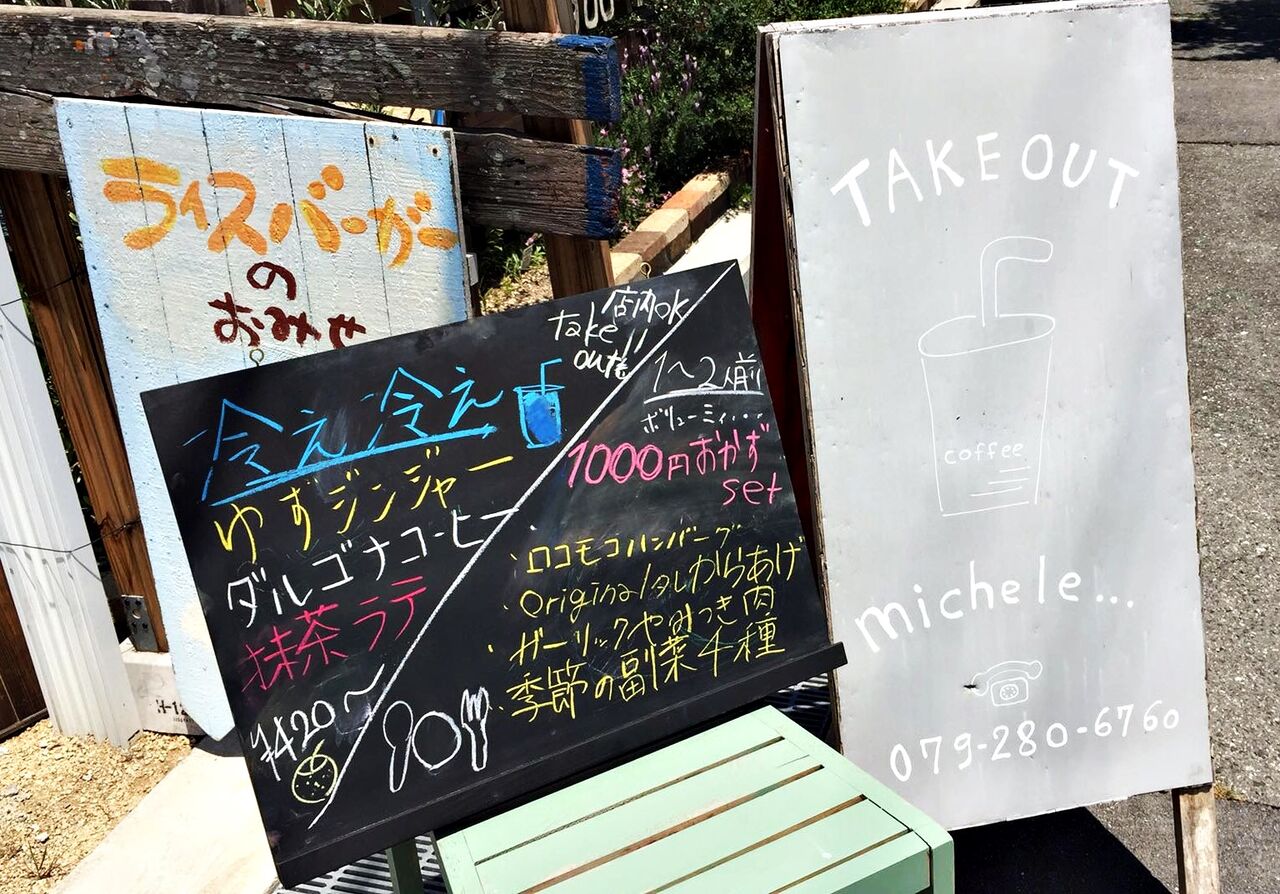 ライスバーガー
の
おみせ
店内OK
Take
out も
冷え冷え
ゆずジンジャー
ダルゴナコーヒー
抹茶ラテ
¥420〜
1〜2人前
ボリューミィ…
1000円おかず
set
・ロコモコハンバーグ
・Originalタレからあげ
・ガーリックやみつき肉
・季節の副菜4種
TAKEOUT
coffee
michele...
079-280-6760